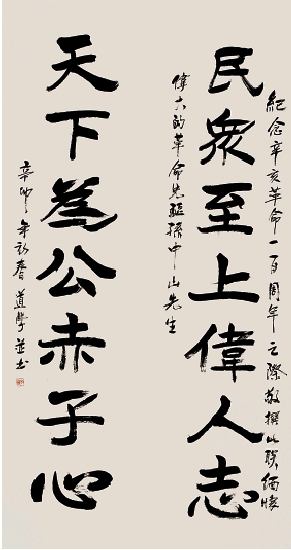 紀念辛亥革命一百周年之際敬撰此聯緬懷
民眾至上偉人志
偉大的革命先驅孫中山先生
天下為公赤子心
辛卯年初春道學並書